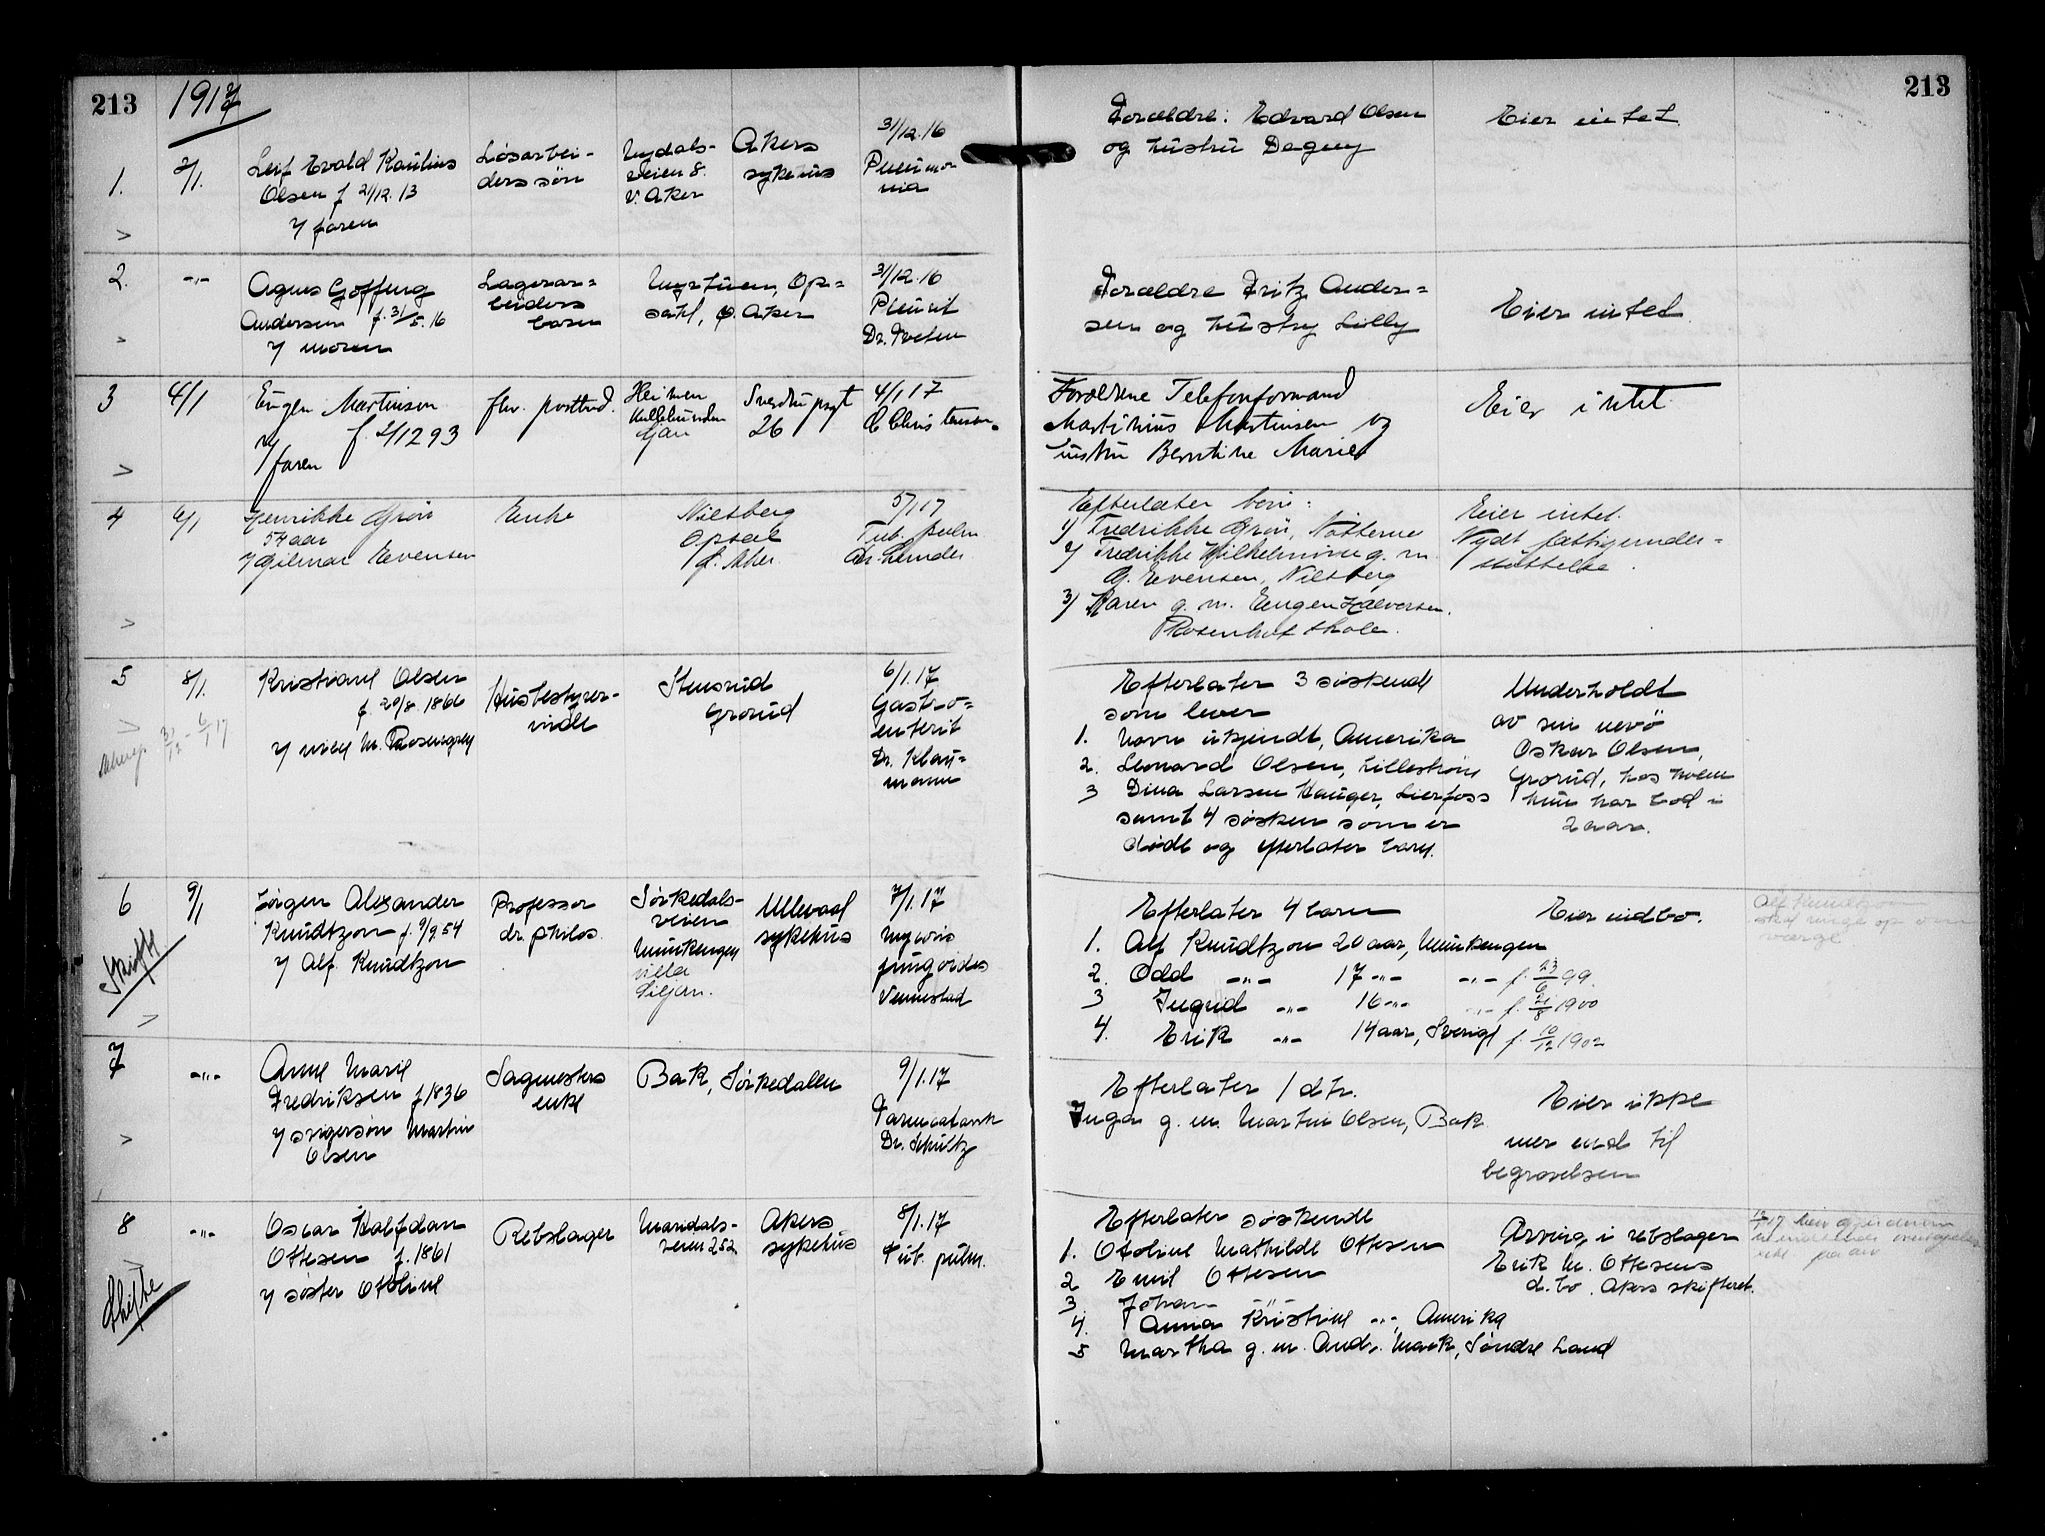 213
1917
213
1.
2/1.
Leif Evald Paulius
Olsen f 21/12.13
v/ faren
Løsarbei-
ders søn
Nydals-
veien 8.
V. Aker
Akers
sykehus
31/12.16
Pneumo-
nia
Forældre: Edvard Olsen
og hustru Dagny
Eier intet
2.
-"-
Agnes Goffeng
Andersen f. 31/5.16
v/ moren
Lagerar=
beiders
barn
Myrtuen, Op=
sahl, Ø. Aker
31/12.16
Pleurit
Dr. Tveten
Forældre Fritz Ander=
sen og hustry Lilly
Eier intet
3
4/1
Eugen Martinsen
v/ f. 2/12 93
faren
fhv. postbud.
Heimen
Kullebunden
Ljan
Sverdrupsgt
26
4/1 17
C Christensen
Forældrene Telefonformand
Martinius Martinsen og
hustru Berntine Marie
Eier intet
4
6/1
Henrikke Grøn
54 aar
v/ Hilmar Evensen
Enke
Nilsberg
Opsal
Ø. Aker
5/1 17
Tub. pulm
Dr. Lunder
Efterlater barn:
1) Fredrikke Grøn, Nøtterøe
2) Fredrikke Wilhelmine g. m.
Hj. Evensen, Nilsberg
3) Karen g. m. Eugen Halvorsen
Rosenhof skole.
Eier intet.
Nydt fattigunder=
støttelse.
5
8/1.
Kristiane Olsen
f. 29/8. 1866
v/ niese M. Rosengren
Husbestyrer-
inde
Stensrud
Grorud
6/1.17
Gastro=
enterit
Dr. Klau=
mann
31/12 - 6/1 17
Efterlater 3 søskende
som lever
1. Navn ukjendt, Amerika
2. Leonard Olsen, Lillestrøm
3 Dina Larsen Hauger, Lierfoss
samt 4 søsken som er
døde og efterlater barn.
Underholdt
av sin nevø
Oskar Olsen,
Grorud, hos hvem
hun har bod i
2 aar.
6
9/1
Skifte
Jørgen Alexander
Knudtzon f. 9/9 54
v/ Alf Knudtzon
Professor
dr. philos.
Sørkedals-
veien
Munkengen
villa
Siljan.
Ullevaal
sykehus
7/1.17
Mycosis
fungoides
Vennestad
Efterlater 4 barn
1. Alf Knudtzon 20 aar, Munkengen
2. Odd -"- 17 -"- -"- f. 23/6 99.
3 Ingrid -"- 16 -"- -"- f. 21/8 1900
4. Erik -"- 14 aar, Sverige f. 10/12 1902
Eier indbo.
Alf Knudtzon
skal ringe op om
værge
7
-"-
Anne Marie
Fredriksen f 1836
v/ svigersøn Martin
Olsen
Sagmesters
enke
Bak, Sørkedalen
9/1.17
Dr. Schultz
Efterlater 1 dtr.
Inga g. m. Martin Olsen, Bak
Eier ikke
mer end til
begravelsen
8
-"-
Skifte
Oscar Halfdan
Ottesen f. 1861
v/ søster Otoline
Rebslager
Maridals-
veien 252
Akers
sykehus
8/1.17
Tub. pulm.
Efterlater søskende
1. Otoline Mathilde Ottesen
2 Emil Ottesen
3 Johan -"-
4. Anna Kristine -"-, Amerika
5 Martha g. m. And. Mark, Søndre Land
Arving i rebslager
Erik M. Ottesens
d.bo. Akers skifteret.